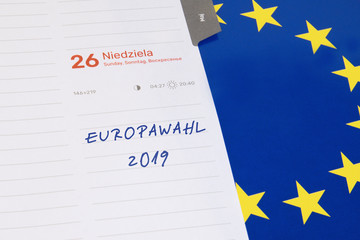 Maj
26 Niedziela
Sunday, Sonntag, Воскресенье
146+219 04:27 20:40
EUROPAWAHL
2019